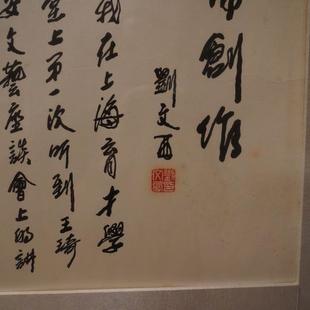 創作
劉文西
我在上海育才學
堂上第一次听到王琦
安文藝座談會上的講